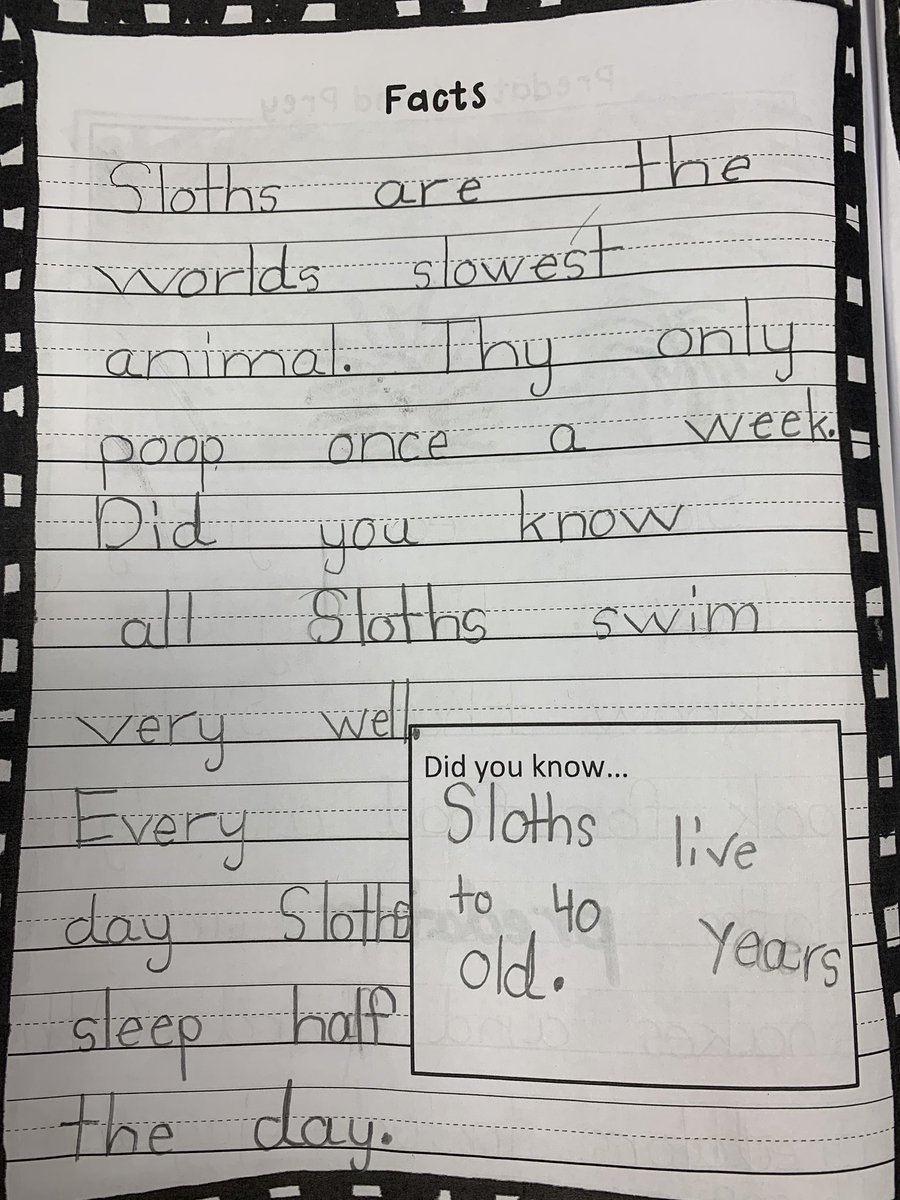 Facts
Sloths are the
worlds slowest
animal. Thy only
poop once a week.
Did you know
all Sloths swim
very well.
Every
day Sloths
sleep half
the day.
Did you know...
Sloths live
to 40 years
old.